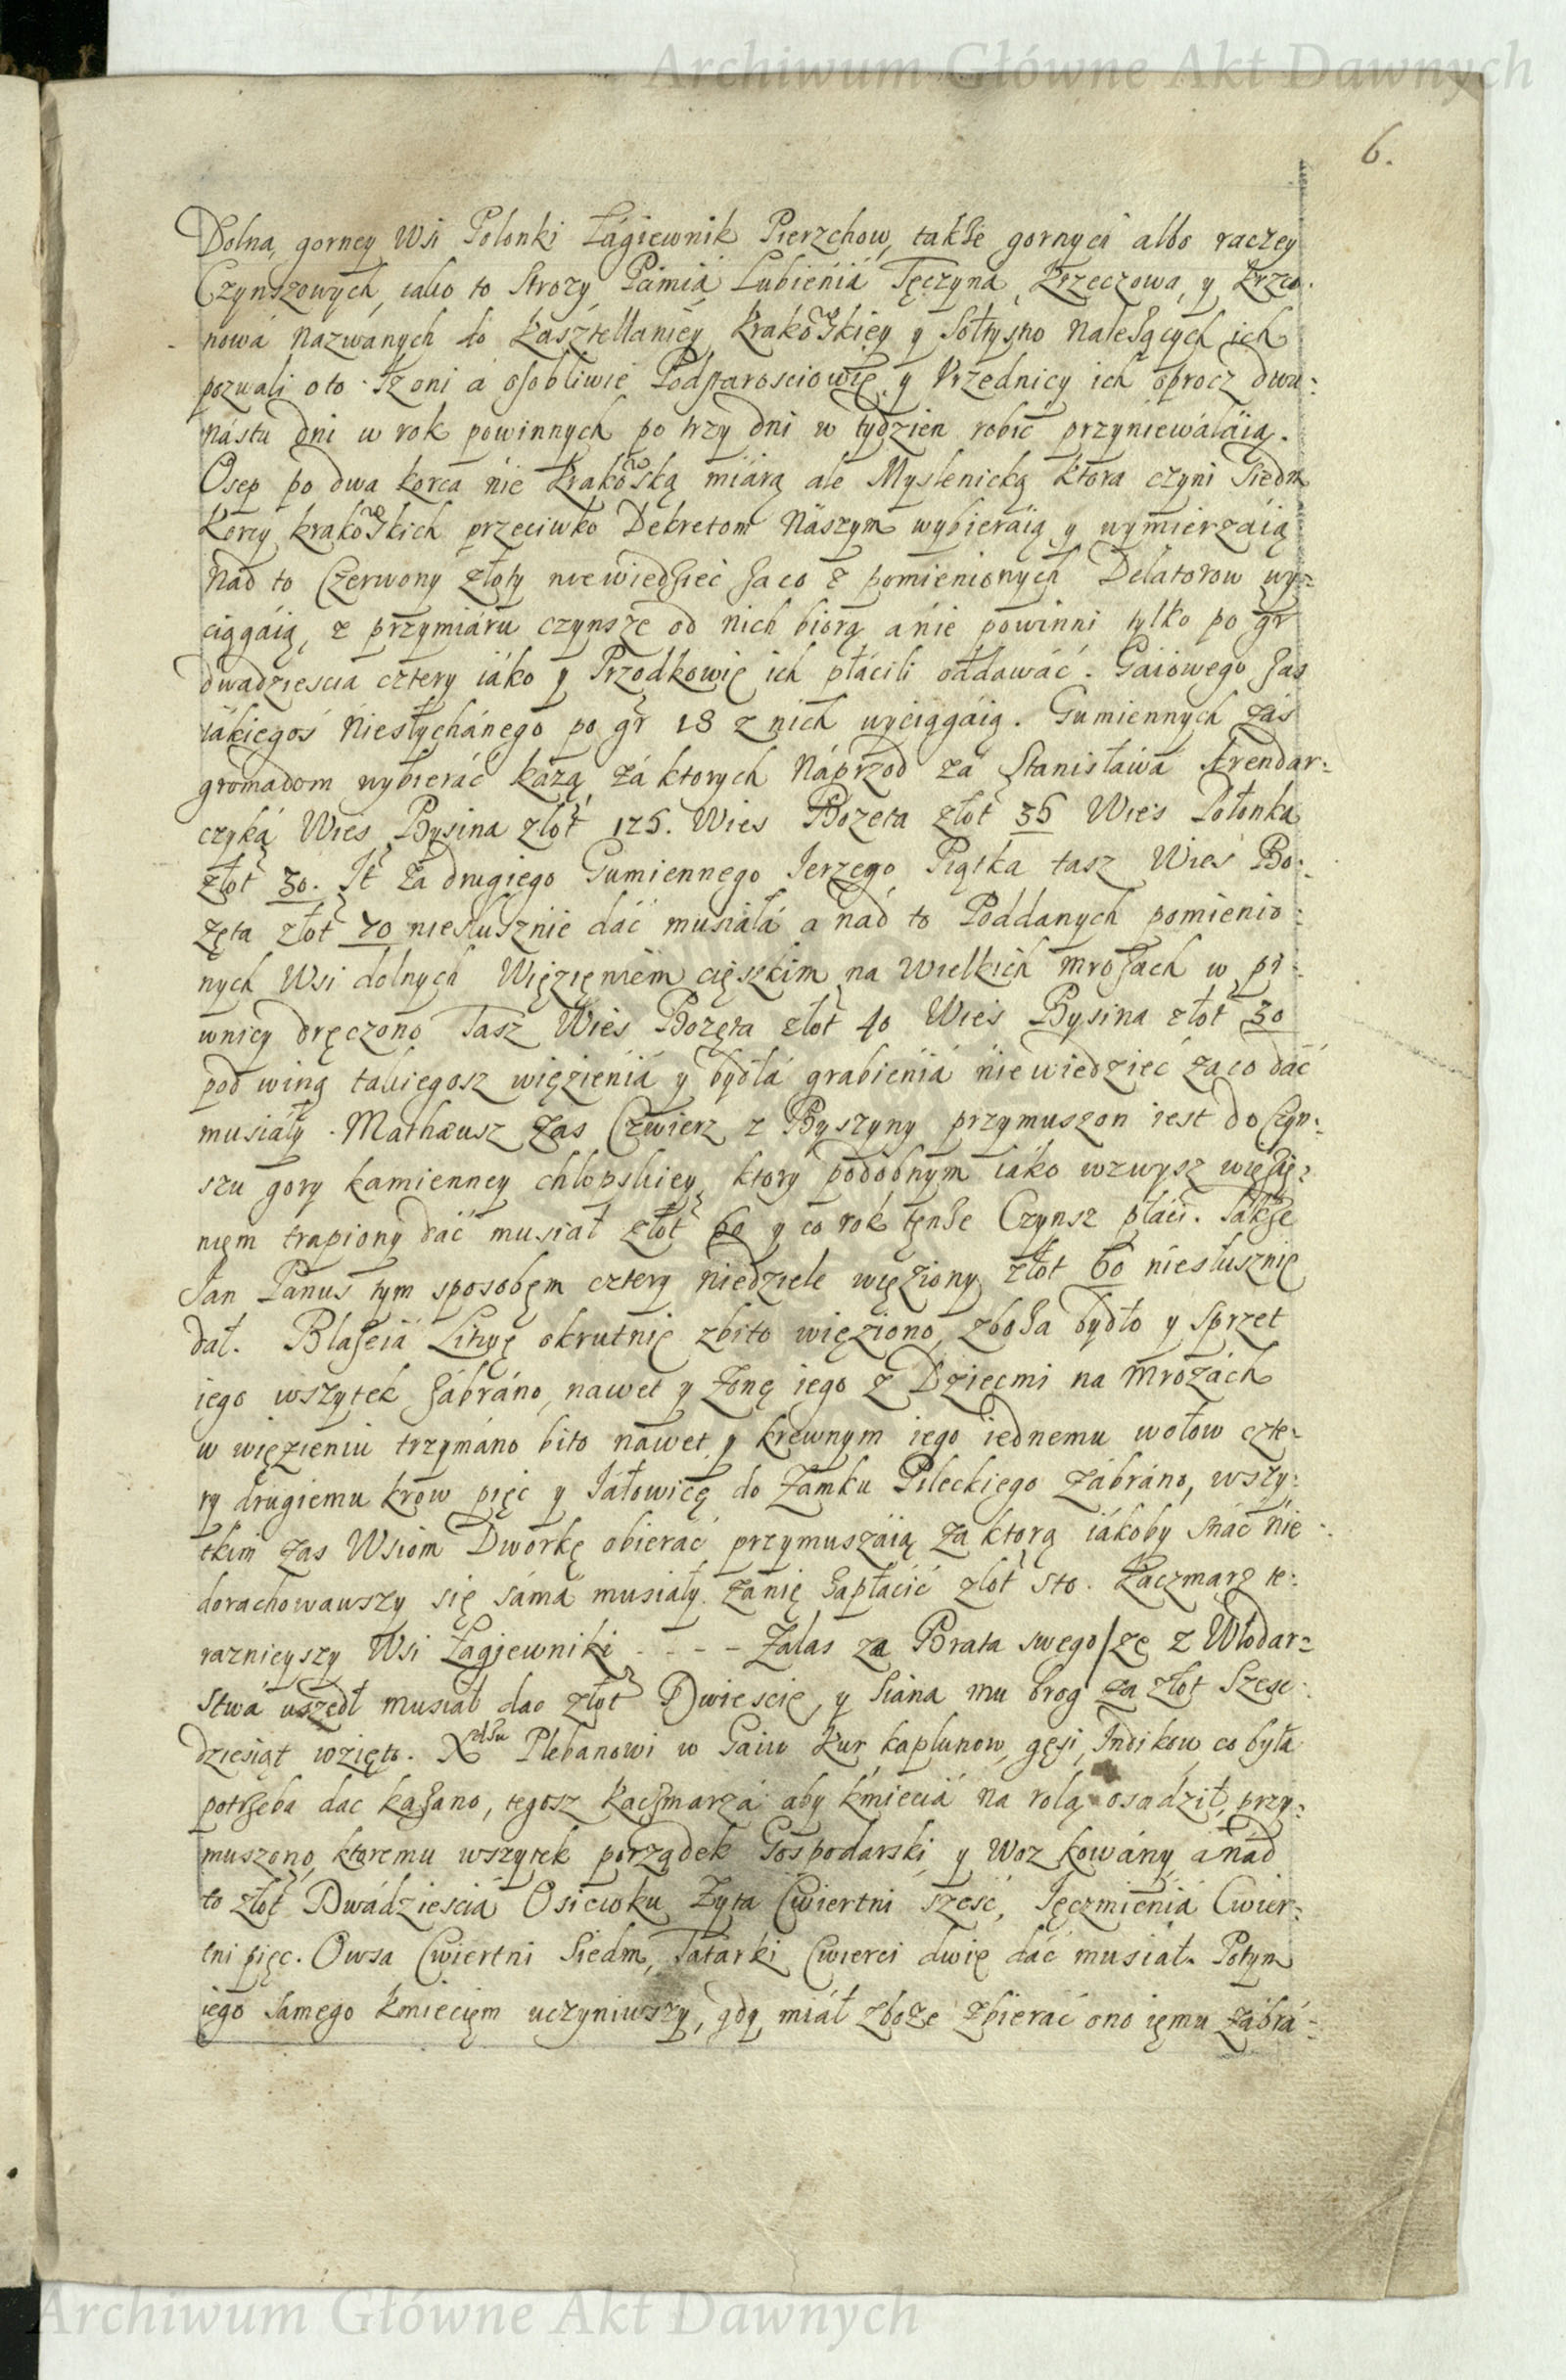 Archiwum Główne Akt Dawnych
6.
Dolna, gorney Wsi Polonki Łagiewnik Pierzchow, takße gornych albo raczey
Czynszowych, iako to Strozy Pcimia Lubienia Tęczyna, Krzeczowa, y Krzczo-
nowá nazwanych do Kasztellaniey Krakowskiey y Sołtystwo należących ich
pozwali oto Iz oni a osobliwie Podstarosciowie y Vrzednicy ich oprocz dwu-
nástu dni w rok powinnych po trzy dni w tydzien robić przyniewáláią.
Osep po dwa korca nie krakowską miárą ale Myslenicką ktora czyni Siedm
Korcy krakowskich przeciwko Dekretom Nászym wybieráią y wymierzáią
nad to Czerwony złoty niewiedzieć za co z pomienionych Delatorow wy-
ciągáią, z przymiáru czynsze od nich biorą a nie powinni tylko po gr
dwadziescia cztery iáko y Przodkowie ich płácili oddawáć. Gaiowego zas
iákiegoś niesłychánego po gr 18 z nich wyciągáią. Gumiennych zás
gromadom wybieráć każą, zá ktorych náprzod zá Stanisława Arendar-
czyką Wies Bysina złot 126. Wies Bozeta złot 36 Wies Połonka
złot 30. It za drugiego Gumiennego Ierzego Piątka tasz Wieś Bo-
zęta złot 70 niesłusznie dáć musiałá a nád to Poddanych pomienio-
nych Wsi dolnych Więzięniem cięszkim na wielkich mrozach w pi-
wnicy dręczono Tasz Wieś Bozęta złot 40 Wieś Bysina złot 30
pod winą takiegosz więzieniá y bydłá grabieniá niewiedzieć zaco dáć
musiały. Mathæusz zas Czwierz z Byszyny przymuszon iest do Czyn-
szu gory kamienney chłopskiey, ktory podobnym iáko wzwysz więzię-
nięm trapiony dáć musiał złot 60 y co rok tęnże Czynsz płáci. Także
Jan Panuś tym sposobęm cztery niedziele więziony złot 60 niesłusznię
dał. Błaßeiá Litwę okrutnię zbito więziono, zboża bydło y sprzet
iego wszytek zábráno, nawet y żonę iego z Dziećmi na mrozách
w więzieniu trzymáno bito nawet y krewnym iego iednemu wołow czte-
ry drugiemu krow pięc y Iáłowicę do Zamku Pileckiego zábráno, wszy-
tkim zas Wsiom Dworkę obierać przymuszáią za ktorą iákoby snáć nie
dorachowawszy się sámá musiały zanię zapłácić złot sto. Kaczmarz te-
raznieyszy Wsi Łagiewniki - - - Zalas za Brata swego / ze z Włodar-
stwá uszedł musiał dac złot Dwiescie, y siana mu brog za złot Szesc-
dziesiąt wzięto. X Plebanowi w Gaiu kur kapłunow, gęsi, Indikow co była
potrzeba dac kazano, tegosz Kaczmarzá aby kmieciá na rolą osadził, przy-
muszono, ktoremu wszytek porządek Gospodarski y Woz kowány, a nád
to złot Dwádziesciá Osiewku Zyta Cwiertni sześć, Ięczmieniá Cwier-
tni pięc. Owsa Cwiertni Siedm, Tatarki Cwierci dwie dáć musiał. Potym
iego samego kmiecięm uczyniwszy, gdy miáł zboże zbieráć ono ięmu zábrá-
Archiwum Główne Akt Dawnych